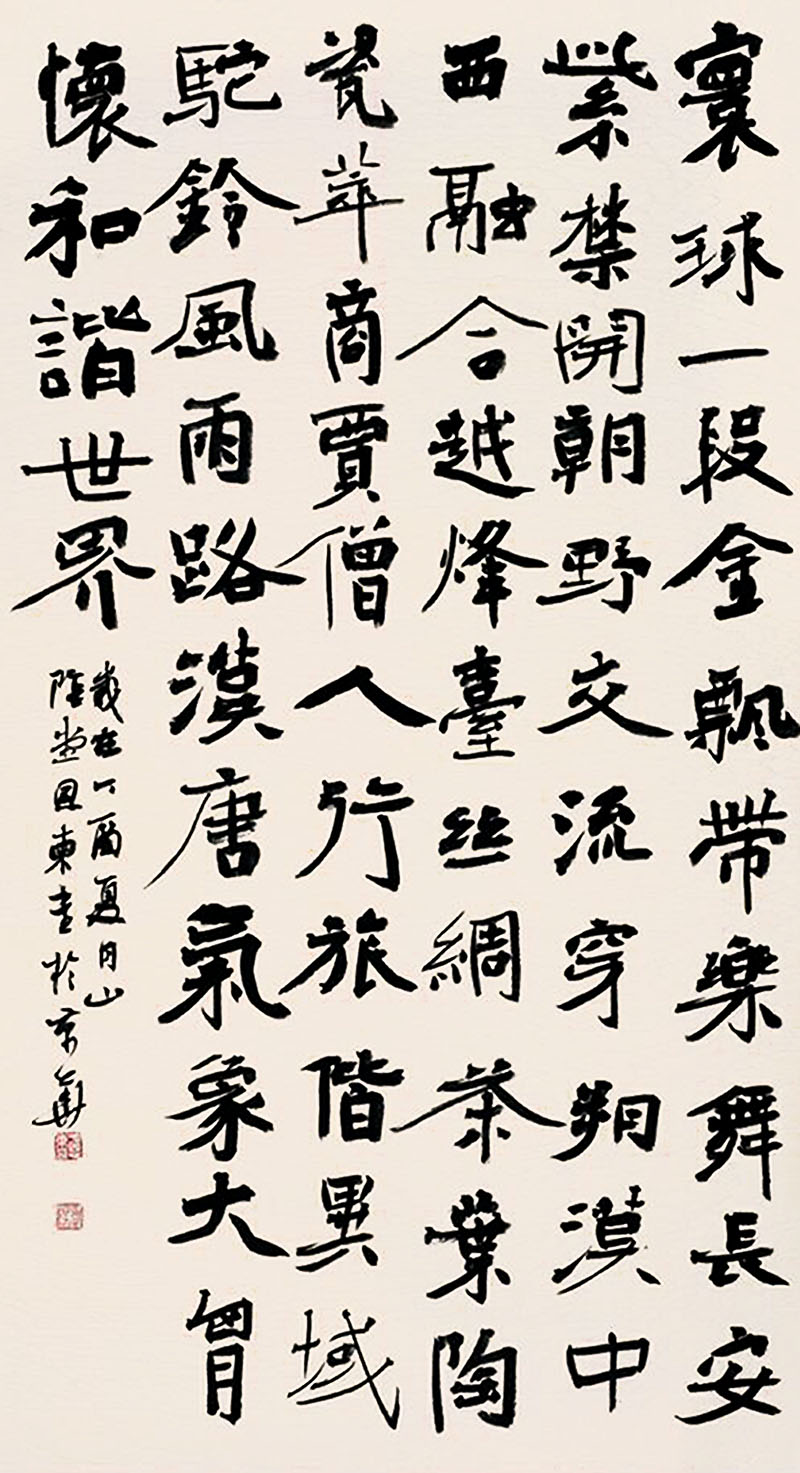 寰球一段金飄帶樂舞長安
紫禁開朝野交流穿朔漠中
西融合越烽臺丝綢茶葉陶
瓷萃商賈僧人行旅偕異域
駝鈴風雨路漢唐氣象大胷
懷和諧世界
歲在丁酉夏月山
陰東書於京華